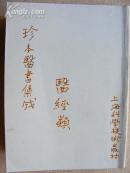 珍本醫書集成
醫經類
上海科學技術出版社